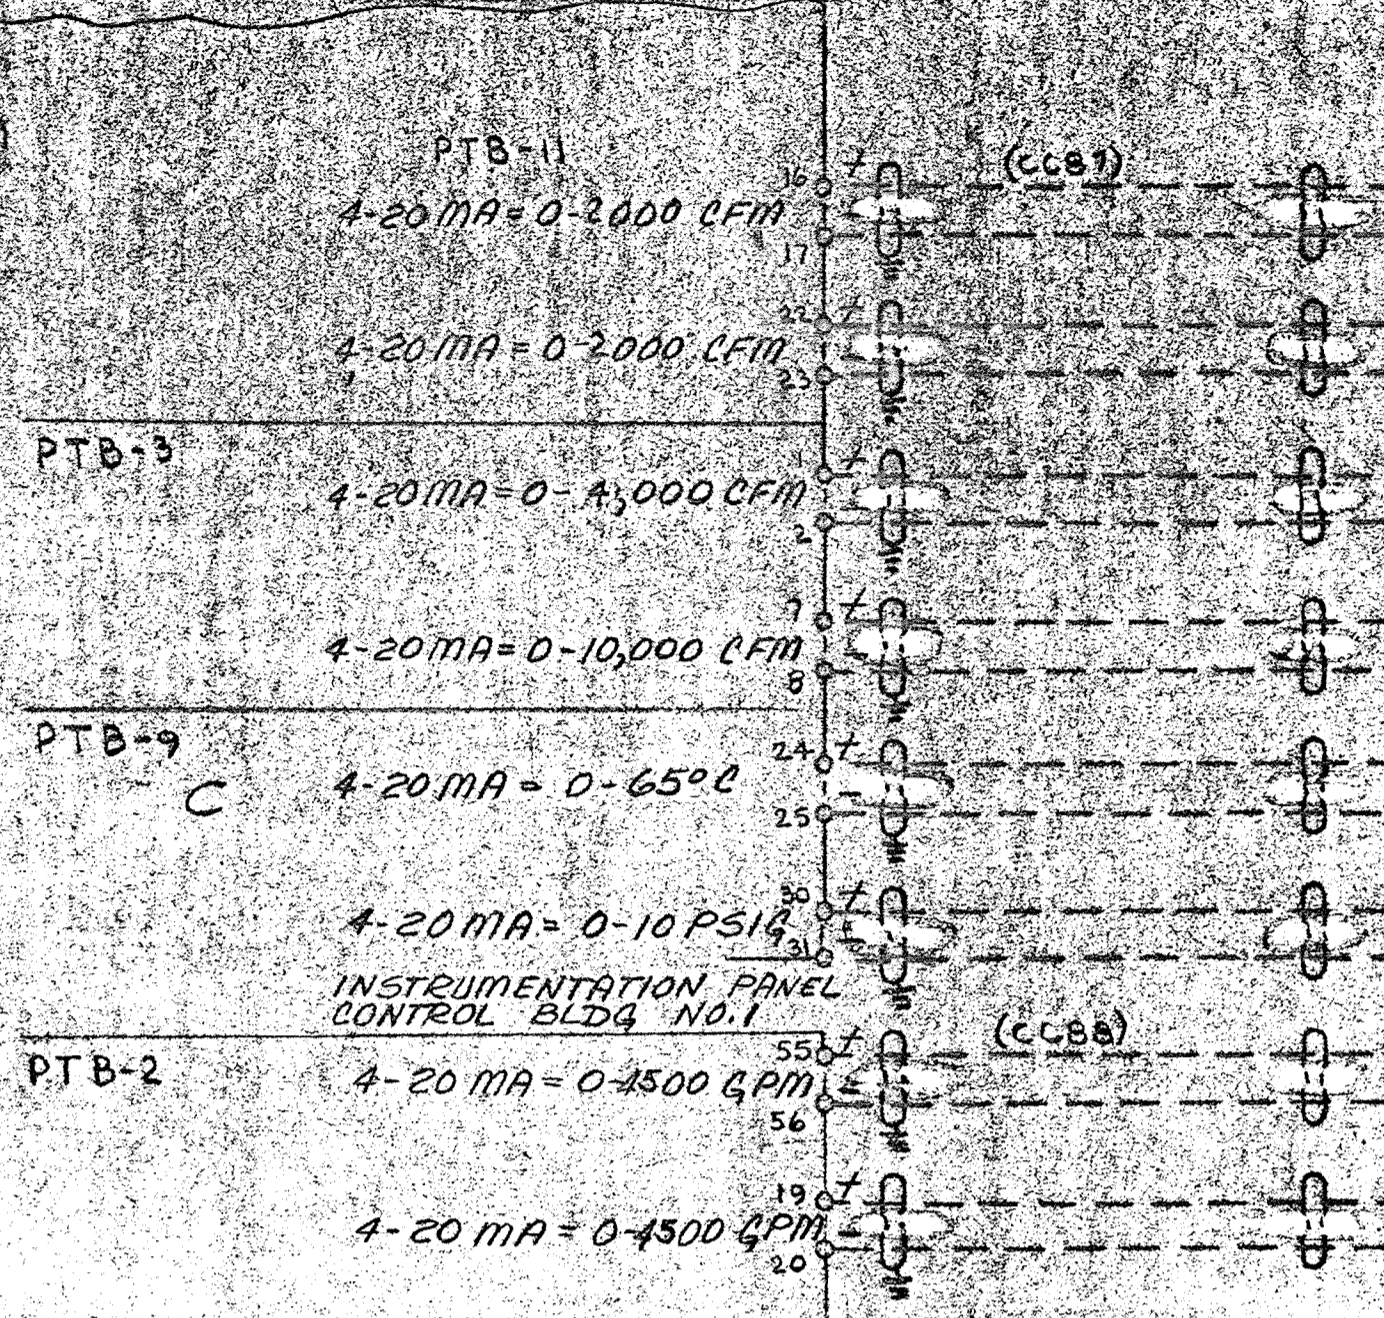 PTB-11
(CC87)
16 +
4-20 MA = 0-2000 CFM
17 -
22 +
4-20 MA = 0-2000 CFM
23 -
PTB-3
1 +
4-20 MA = 0-4,000 CFM
2 -
7 +
4-20 MA = 0-10,000 CFM
8
PTB-9
24 +
C
4-20 MA = 0-65°C
25 -
30 +
4-20 MA = 0-10 PSIG
31 -
INSTRUMENTATION PANEL
CONTROL BLDG NO.1
(CC88)
55 +
PTB-2
4-20 MA = 0-1500 GPM -
56
19 +
4-20 MA = 0-1500 GPM -
20